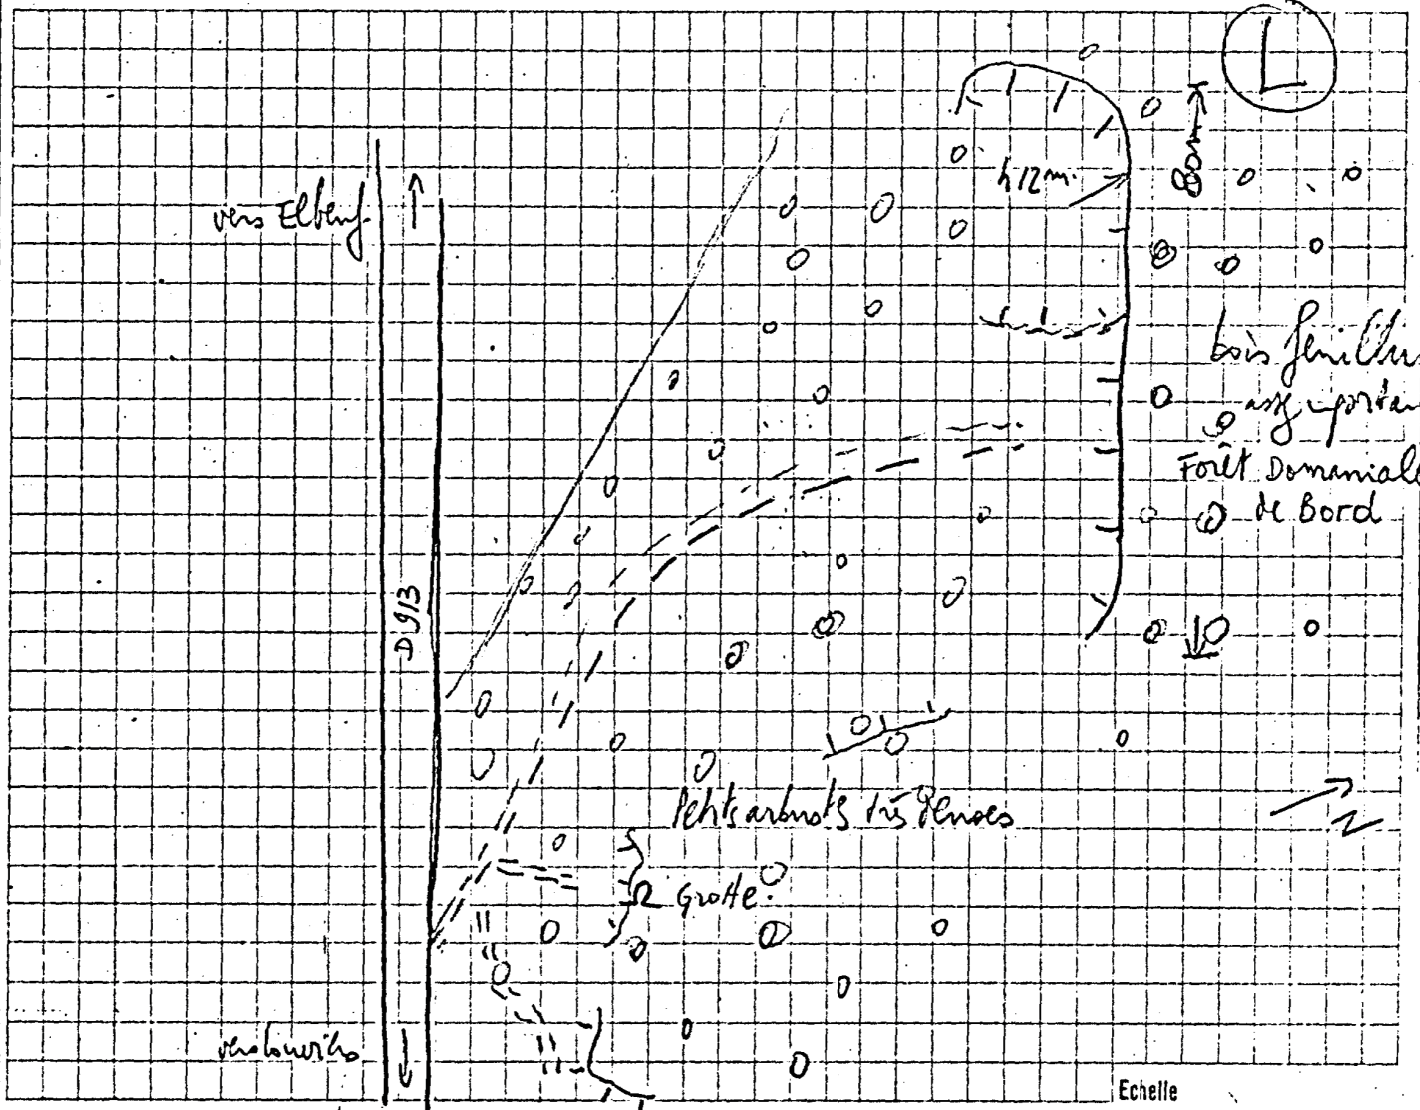 L
80m
h 12 m.
vers Elbeuf
bois feuillus
assez important
Forêt Domaniale
de Bord
D 913
Petits arbustes très denses
N
Grotte?
vers Louviers
Echelle